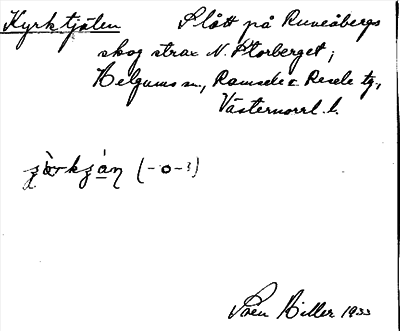 Kyrktjälen Slått på Runeåbergs
skog strax N. Storberget;
Helgums sn, Ramsele o. Resele tg,
Västernorrl. l.
(-o-3)
Sven Hiller 1933